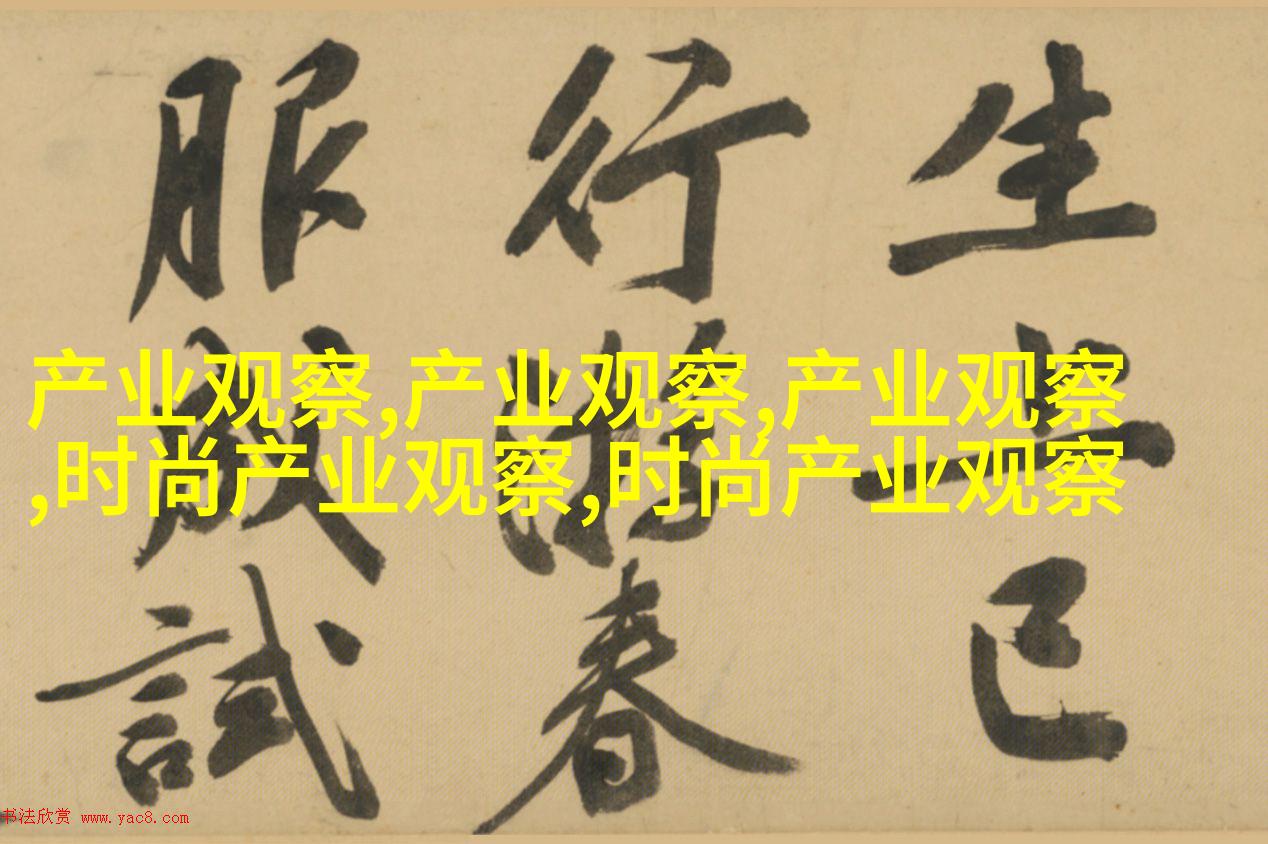 生上巳
行春
服成試
产业观察,产业观察,产业观察
,时尚产业观察,时尚产业观察
书法欣赏 www.yac8.com